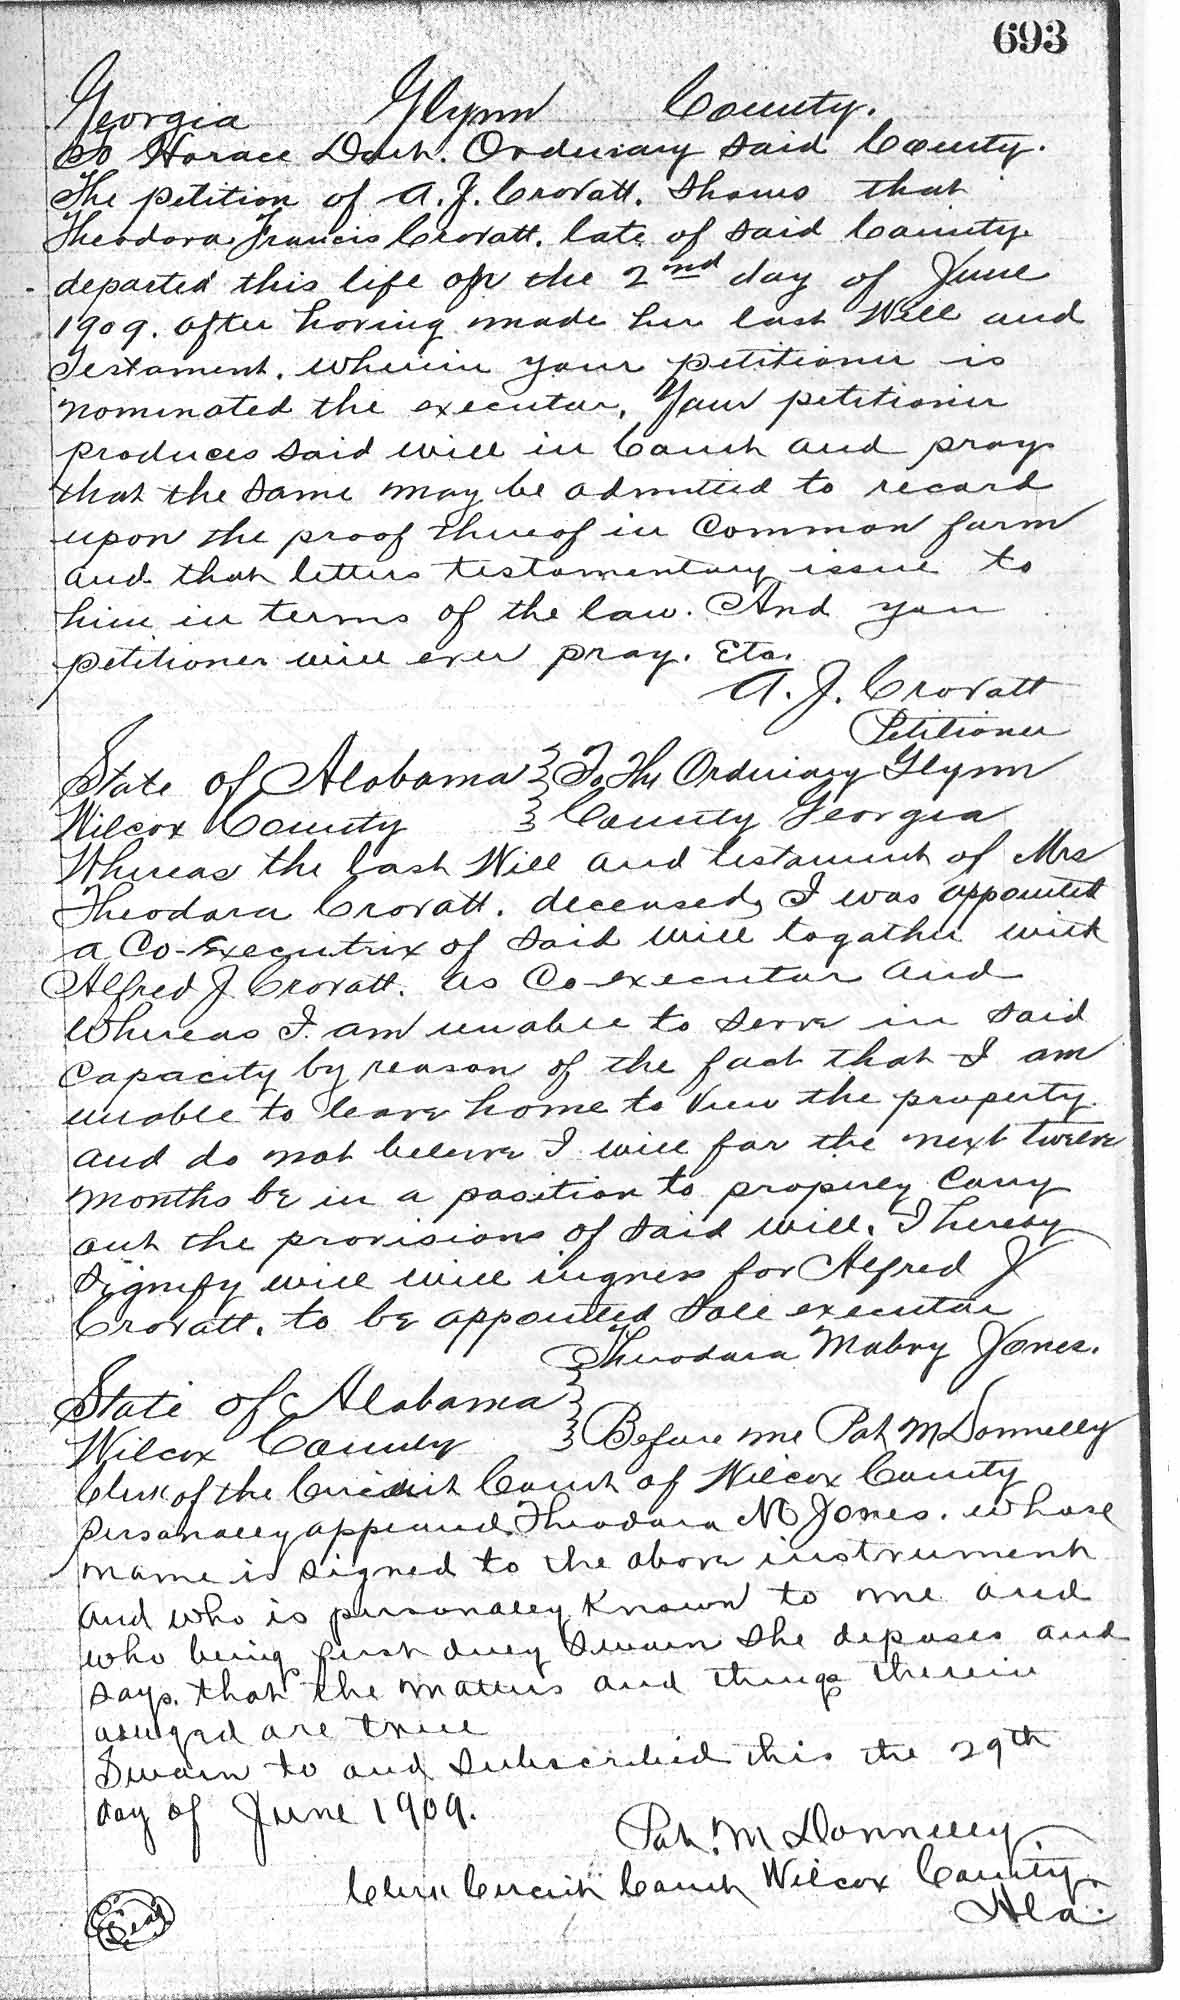 693
Georgia Glynn County.
To Horace Dart. Ordinary said County.
The petition of A. J. Crovatt. Shows that
Theodora Francis Crovatt. late of said County.
departed this life on the 2nd day of June
1909. after having made her last Will and
Testament. wherein your petitioner is
nominated the executor. Your petitioner
produces said will in Court and prays
that the same may be admitted to record
upon the proof thereof in Common form
and that letters testamentary issue to
him in terms of the law. And your
petitioner will ever pray. Etc.
A. J. Crovatt
Petitioner
State of Alabama } To The Ordinary Glynn
Wilcox County } County Georgia
Whereas the last Will and testament of Mrs
Theodora Crovatt. deceased, I was appointed
a Co-Executrix of said will togather with
Alfred J Crovatt. as Co-executor and
Whereas I am unable to serve in said
Capacity by reason of the fact that I am
unable to leave home to view the property.
and do not believe I will for the next twelve
months be in a position to properly carry
out the provisions of said will. I hereby
signify will will ingness for Alfred J
Crovatt. to be appointed sole executor
Theodora Mabry Jones.
State of Alabama }
Wilcox County } Before me Pat McDonnelly
Clerk of the Circuit Court of Wilcox County
personally appeared Theodora M Jones. whose
name is signed to the above instrument
and who is personally known to me and
who being first duly sworn she deposes and
says. that the matters and things therein
alleged are true
Sworn to and subscribed this the 29th
day of June 1909.
Pat. McDonnelly.
Clerk Circuit Court Wilcox County.
Ala.
Seal